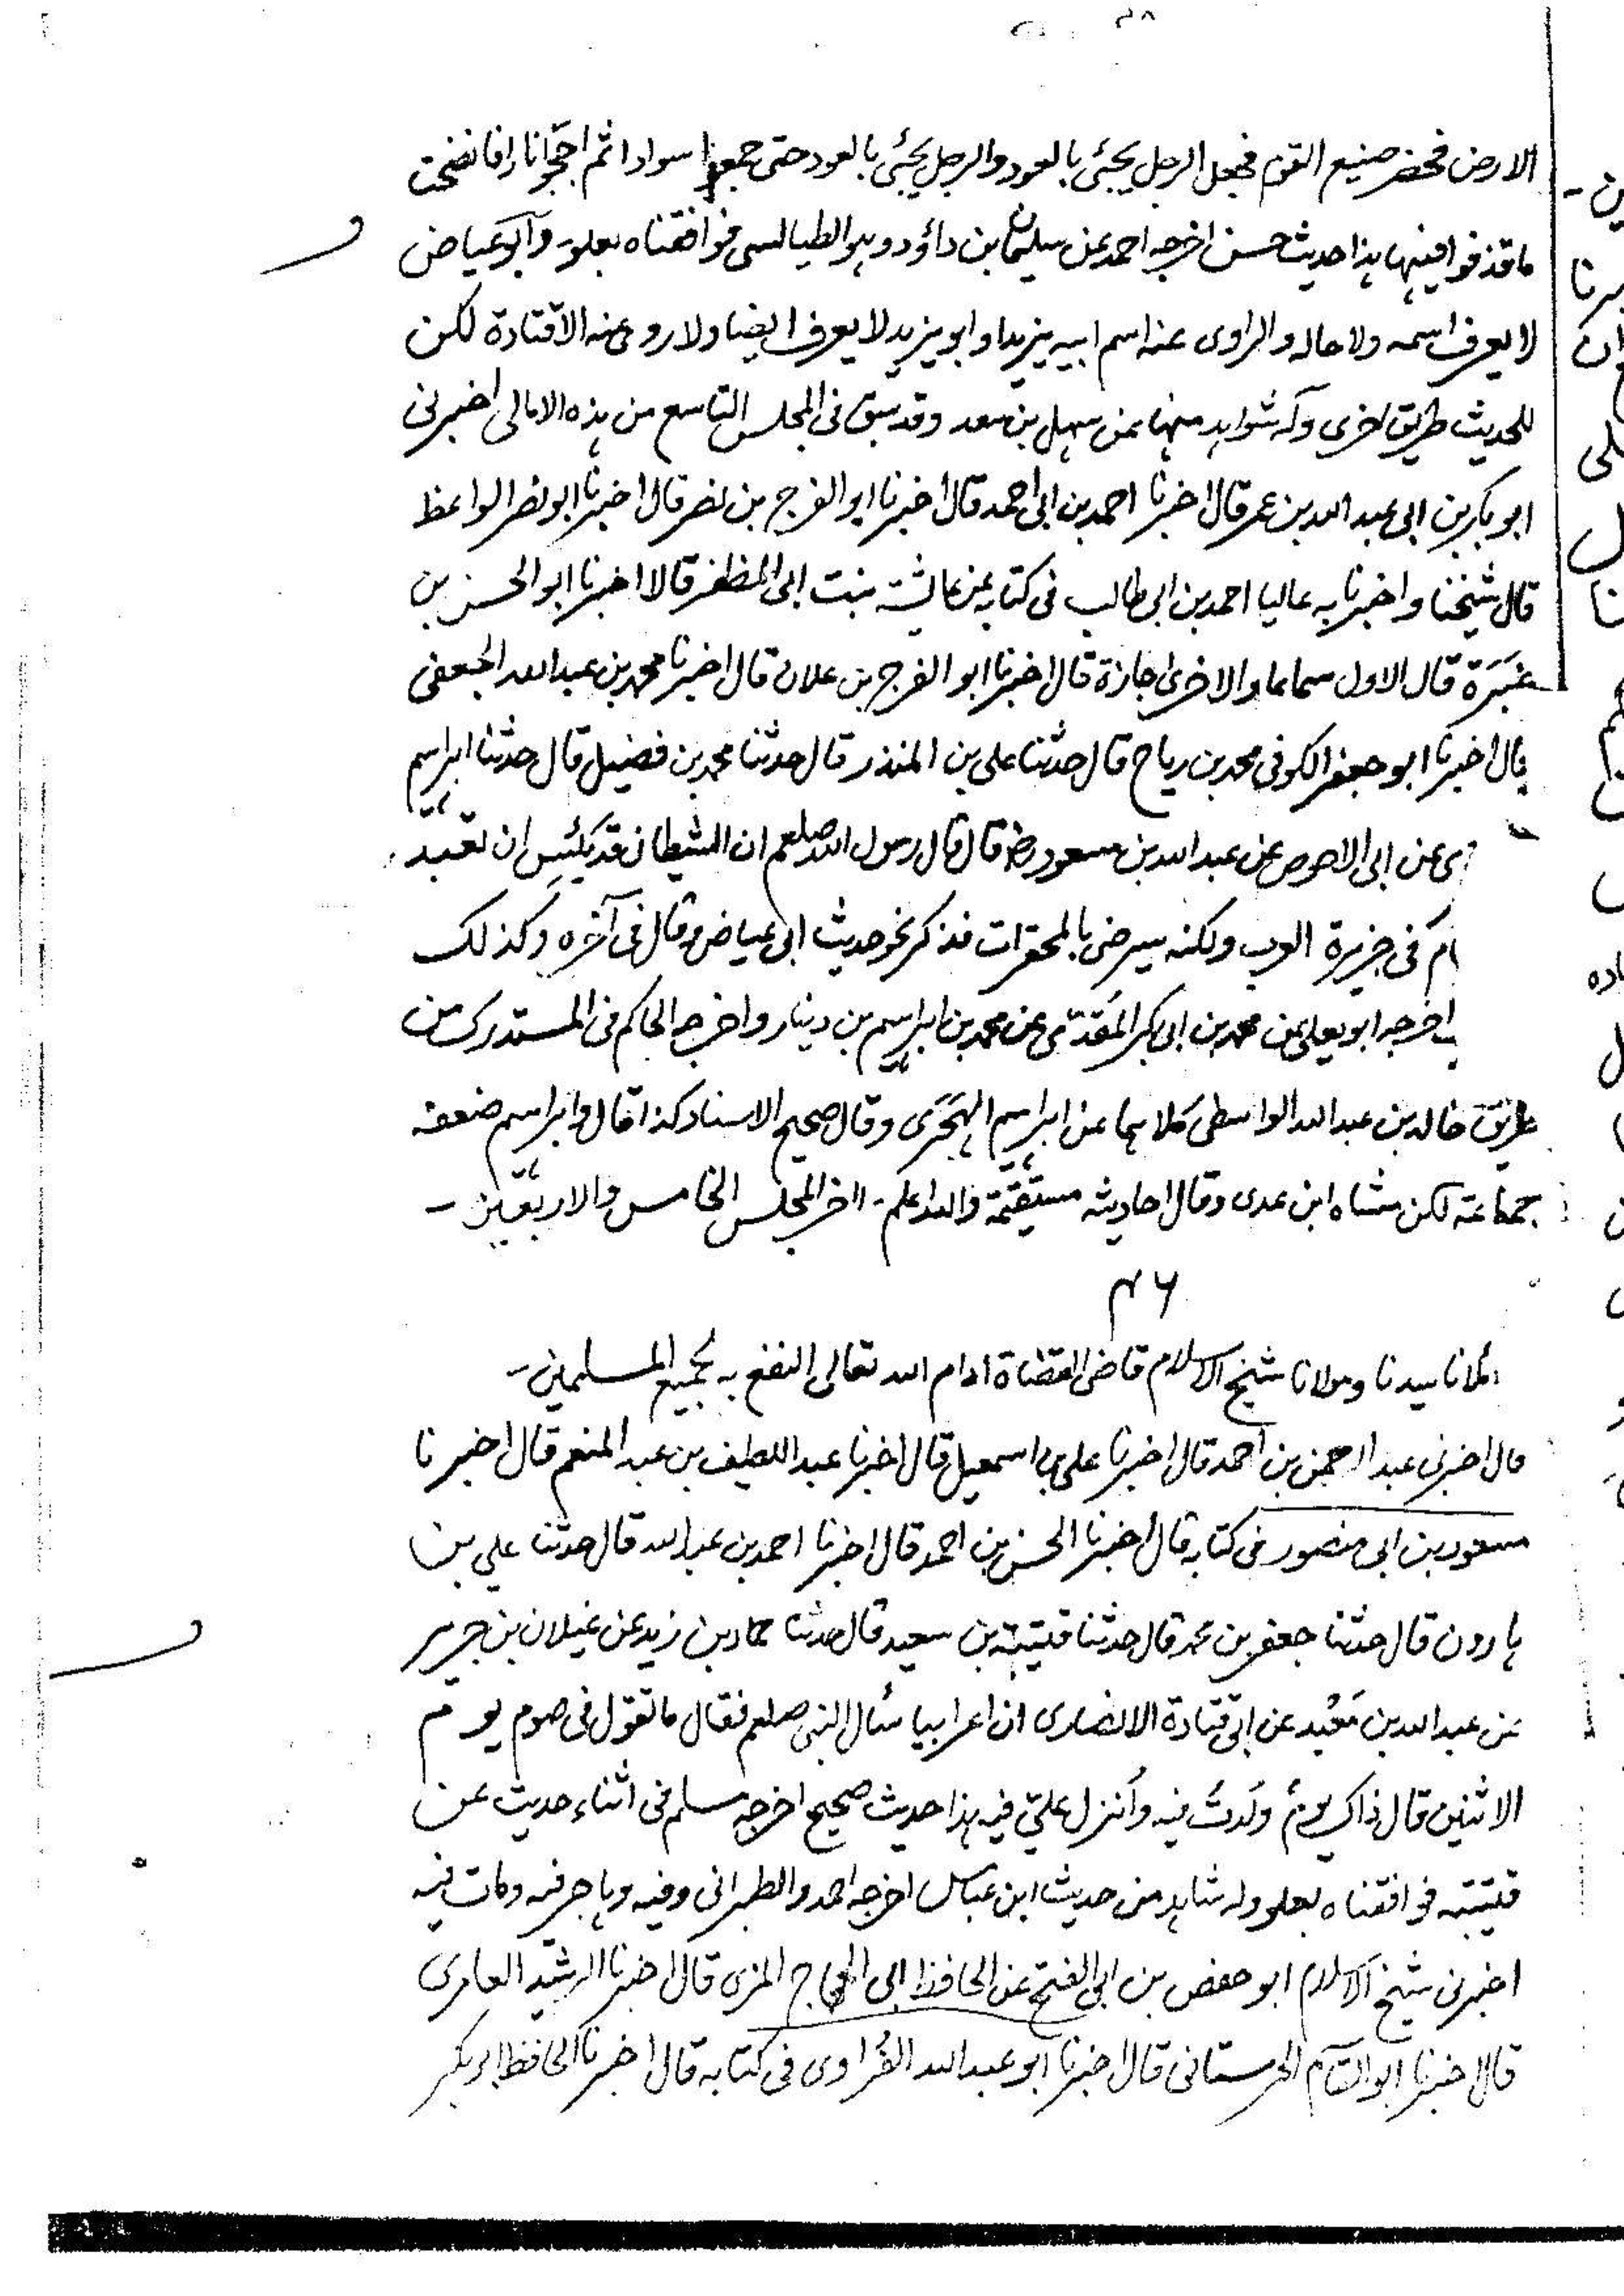 الارض فحضر صنيع القوم فجعل الرجل يجئي بالعود والرجل يجئي بالعود حتى جمعوا سوادا ثم اججوا نارا فانضجت
ما قذفوا فيها هذا حديث حسن اخرجه احمد عن سليمان بن داؤد وهو الطيالسي فوافقناه بعلو وابو عياض
لا يعرف اسمه ولا حاله والراوى عنه اسم ابيه يزيد وابو يزيد لا يعرف ايضا ولا روى عنه الا قتادة لكن
للحديث طريق اخرى وله شواهد منها عن سهل بن سعد وقد سبق فى المجلس التاسع من هذه الامالى اخبرنى
ابو بكر بن ابى عبد الله بن عمر قال اخبرنا احمد بن ابى احمد قال اخبرنا ابو الفرج بن نصر قال اخبرنا ابو نصر الواعظ
قال شيخنا واخبرنا به عاليا احمد بن ابى طالب فى كتابه عن عائشة بنت ابى المظفر قالا اخبرنا ابو الحسن بن
غَبَرَة قال الاول سماعا والاخرى اجازة قال اخبرنا ابو الفرج بن علان قال اخبرنا محمد بن عبد الله الجعفى
قال اخبرنا ابو جعفر الكوفى محمد بن رياح قال حدثنا على بن المنذر قال حدثنا محمد بن فضيل قال حدثنا ابراهيم
رى عن ابى الاحوص عن عبد الله بن مسعود رض قال قال رسول الله صلعم ان الشيطان قد يَئِسَ ان تعبد
ام فى جزيرة العرب ولكنه سيرضى بالمحقرات فذكر نحو حديث ابى عياض وقال فى آخره وكذلك
اخرجه ابو يعلى عن محمد بن ابى بكر المُقَدَّمى عن محمد بن ابراهيم بن دينار واخرجه الحاكم فى المستدرك من
طريق خالد بن عبد الله الواسطى كلاهما عن ابراهيم الهَجَرى وقال صحيح الاسناد كذا قال وابراهيم ضعفه
جماعة لكن مشاه ابن عدى وقال احاديثه مستقيمة والله اعلم - اخر المجلس الخامس والاربعين -
۴۶
املانا سيدنا ومولانا شيخ الاسلام قاضى القضاة ادام الله تعالى النفع به لجميع المسلمين -
قال اخبرنى عبد الرحمن بن احمد قال اخبرنا على بن اسمعيل قال اخبرنا عبد اللطيف بن عبد المنعم قال اخبرنا
مسعود بن ابى منصور فى كتابه قال اخبرنا الحسن بن احمد قال اخبرنا احمد بن عبد الله قال حدثنا على بن
هارون قال حدثنا جعفر بن محمد قال حدثنا قتيبة بن سعيد قال حدثنا حماد بن زيد عن غيلان بن جرير
عن عبد الله بن مَعْبد عن ابى قتادة الانصارى ان اعرابيا سأل النبى صلعم فقال ما تقول فى صوم يوم
الاثنين قال ذاك يومٌ وُلدتُ فيه واُنزل علىّ فيه هذا حديث صحيح اخرجه مسلم فى اثناء حديث عن
قتيبة فوافقناه بعلو وله شاهد من حديث ابن عباس اخرجه احمد والطبرانى وفيه وهاجر فيه ومات فيه
اخبرنى شيخ الاسلام ابو حفص بن ابى الفتح عن الحافظ ابى الحجاج المزى قال اخبرنا الرشيد العامرى
قال اخبرنا ابو القاسم الحرستانى قال اخبرنا ابو عبد الله الفُراوى فى كتابه قال اخبرنا الحافظ ابو بكر